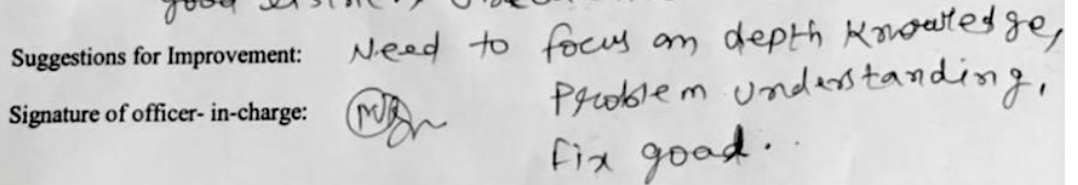 good
Suggestions for Improvement: Need to focus on depth Knowledge,
Problem understanding,
Signature of officer- in-charge:
fix goad.